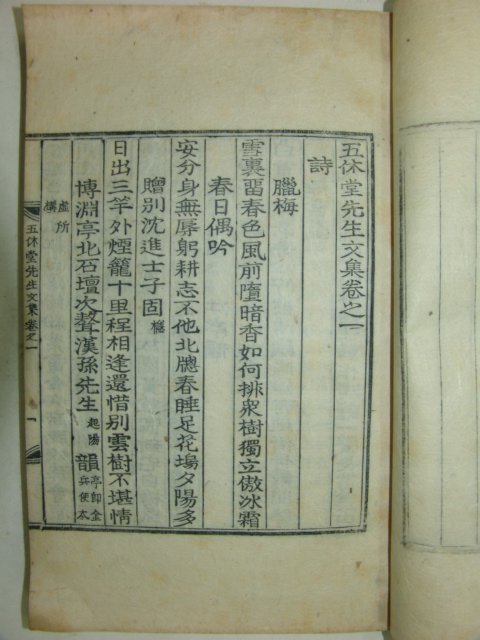 五休堂先生文集卷之一
詩
臘梅
雪裏畱春色風前墮暗香如何排衆樹獨立傲冰霜
春日偶吟
安分身無辱躬耕志不他北牕春睡足花塢夕陽多
贈別沈進士子固
日出三竿外煙籠十里程相逢還惜別雲樹不堪情
博淵亭北石壇次聱漢孫先生起陽韻亭卽金兵使太
虛所構
五休堂先生文集卷之一 一